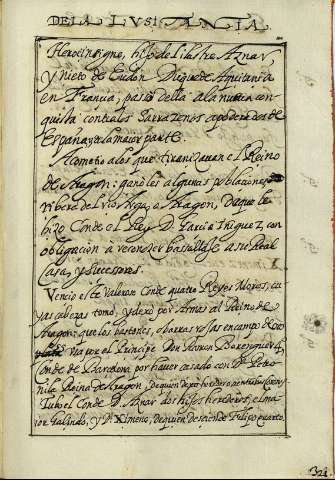 DE LA LUSITANIA
Heroe insigne, hijo de Ilustre Aznar,
y nieto de Eudon Duque de Aquitania
en Francia, paso della a la nueua con-
quista contra los Sarrazenos apoderados de
España, en la mayor parte.
Acometio a los que tiranizauan el Reino
de Aragon: ganoles algunas poblaciones
ribera del rio Arga, o Aragon, de que le
hizo Conde el Rey D. Garcia Iñiguez, con
obligacion a reconocer basallaje a su Real
Casa, y sucessores.
Vencio este Valeroso Conde quatro Reyes Moros, cu-
yas cabezas tomo, y dexo por Armas al Reino de
Aragon: que los bastones, o barras rojas en campo de oro
por el Principe Don Ramon Berenguer 4,
Conde de Barcelona por hauer casado con Dª Petro-
nila Reina de Aragon,
Tubo el Conde D. Aznar dos hijos herederos, el ma-
ior Galindo, y Dª Ximena, de quien desciende Felipo quarto,
321